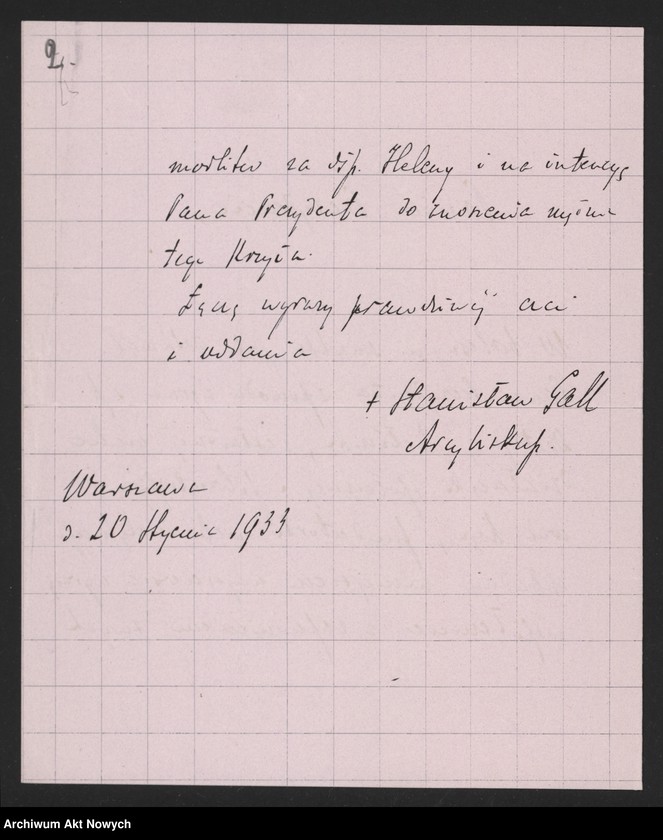 2.
modlitw za ś.p. Heleny i na intencyę
Pana Prezydenta do znoszenia
tego Krzyża.
Łączę wyrazy prawdziwej czci
i oddania
+ Stanisław Gall
Arcybiskup.
Warszawa
d. 20 Stycznia 1933
Archiwum Akt Nowych